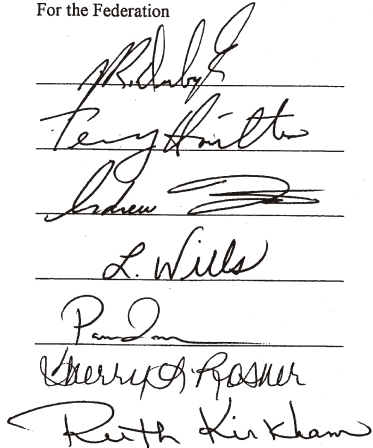 For the Federation
Terry Hamilton
Andrew
L. Wills
Sherry A. Rosner
Ruth Kirkham